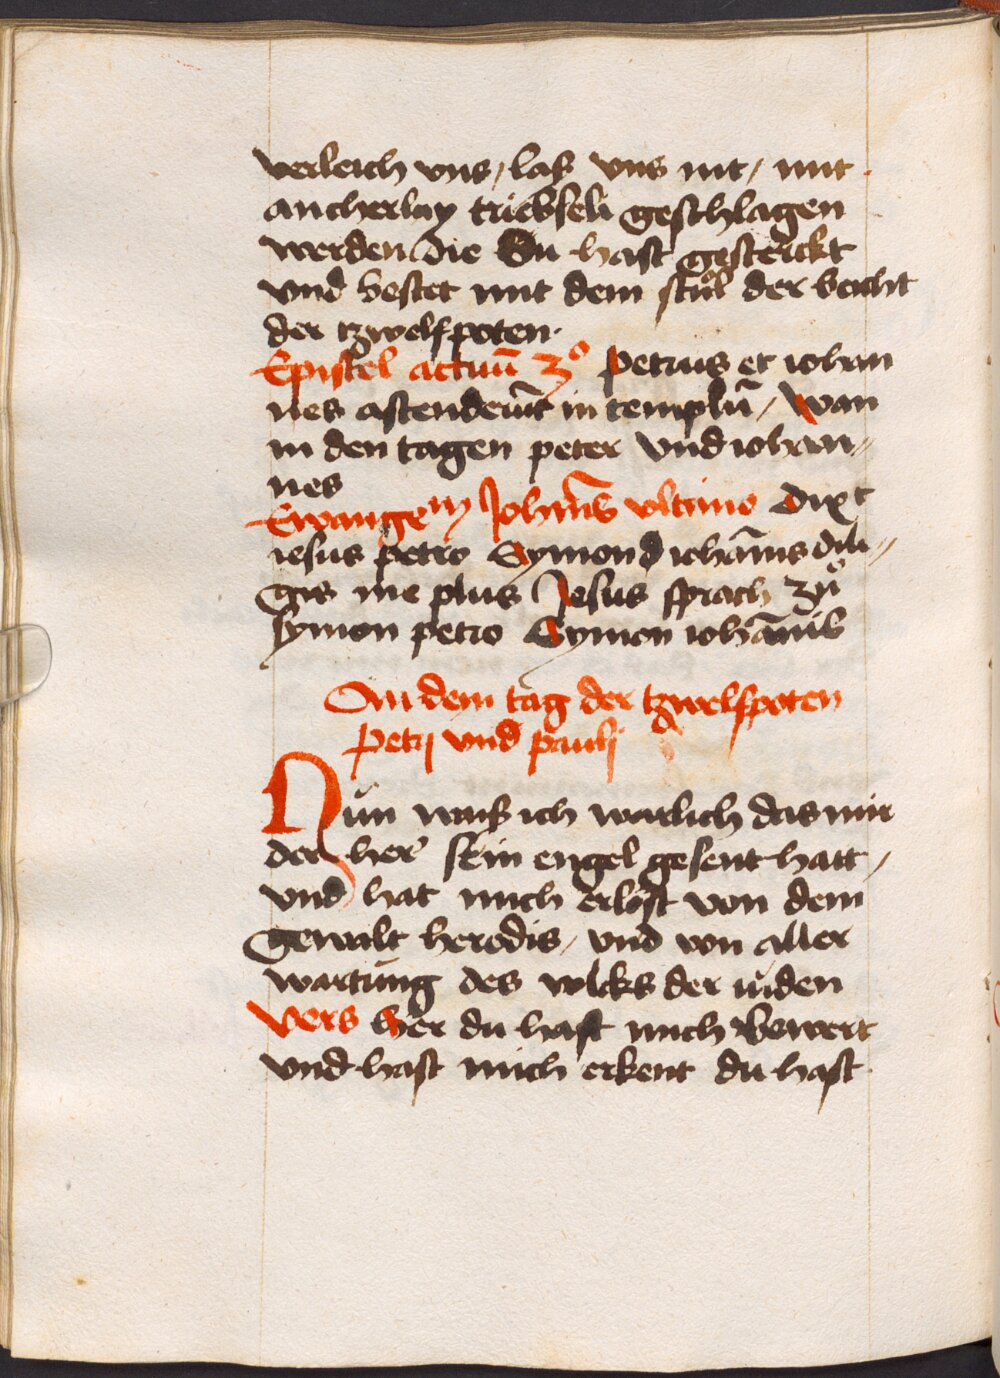 verleich vns / laß vns nit / mit
ancherlay triebseli geschlagen
werden die du hast gesterckt
vnd vestet mit dem stůl der veicht
der tzwelfpoten.
Epistel actuū 3° petrus et iohan
nes astenderūt in templū / wan
in den tagen peter vnd iohan„
nes
Ewangem Johānis vltimo dixt
iesus petro Symon d iohānis dili„
gis me plus Jesus sprach zů
symon petro Symon iohānis
An dem tag der tzwelfpoten
petrj vnd paulj
Nun waiß ich warlich das mir
der her sein engel gesent hatt /
vnd hat mich erlöst von dem
gewalt herodis / vnd von aller
wartung des volcks der iuden
Vers her du hast mich bewert
vnd hast mich erkent du hast